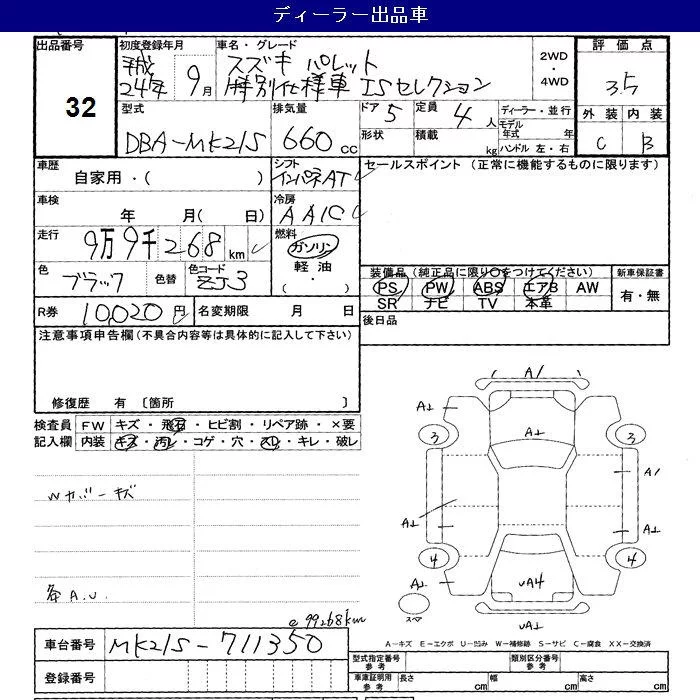 ディーラー出品車
出品番号 初度登録年月 車名・グレード 2WD・4WD 評価点
32
平成24年 9月 スズキ パレット
特別仕様車 ISセレクション
3.5
型式 排気量 ドア 定員 ディーラー・並行 外装 内装
DBA-MK21S 660cc 5 4人 モデル年式 年 C B
形状 積載 kg ハンドル 左・右
車歴 シフト セールスポイント (正常に機能するものに限ります)
自家用・( ) インパネAT
車検 冷房
年 月( 日) AAC
走行 燃料
9万9千268km ガソリン
軽油
( ・ )
色 色替 色コード 装備品(純正品に限り○をつけてください) 新車保証書
ブラック ZJ3 PS PW ABS エアB AW 有・無
SR ナビ TV 本革
R券 10,020円 名変期限 月 日 後日品
注意事項申告欄(不具合内容等は具体的に記入して下さい)
修復歴 有 〔箇所 〕
検査員 FW キズ・飛石・ヒビ割・リペア跡・×要
記入欄 内装 キズ・汚レ・コゲ・穴・スレ・キレ・破レ
Wカバーキズ
各A.U.
A1
A1
A1
3
3
A1
A1
A1
4
4
A1
UA4
A1
スペア
UA1
@99268km
A-キズ E-エクボ U-凹み W-補修跡 S-サビ C-腐食 XX-交換済
車台番号 MK21S-711350
型式指定番号 参考 類別区分番号 参考
登録番号
車庫証明用 参考 長さ cm 幅 cm 高さ cm